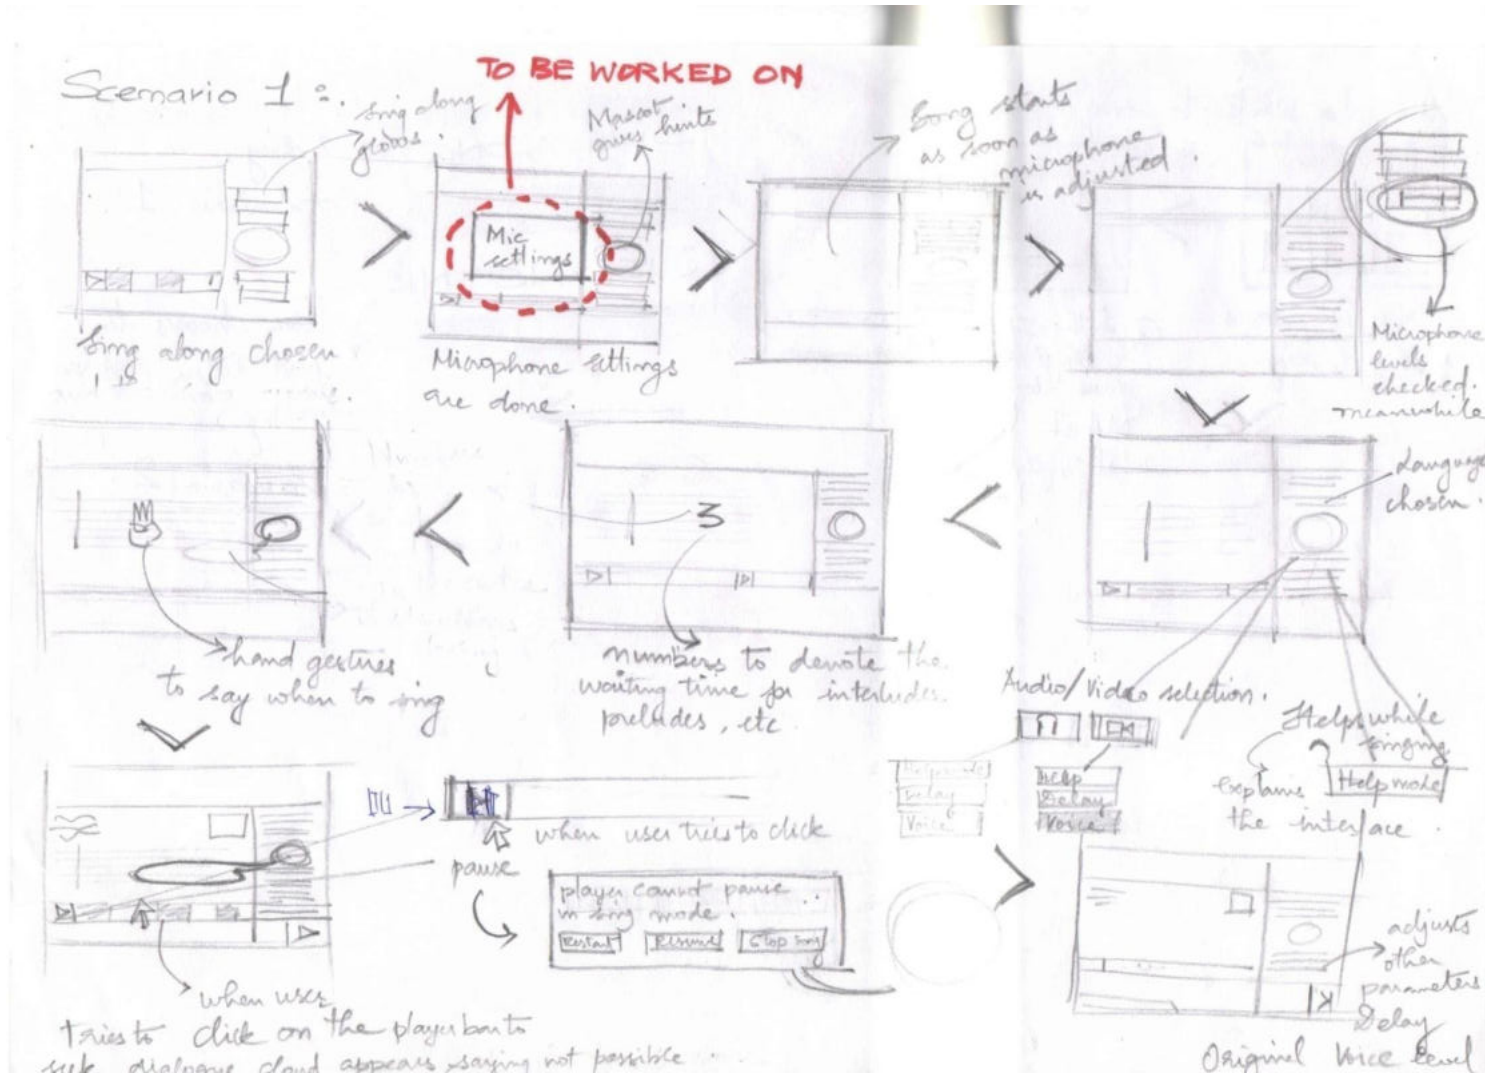 TO BE WORKED ON
Scenario 1 :.
sing along
Mascot
gives hints
Song starts
as soon as
microphone
is adjusted .
Mic
settings
Sing along chosen
Microphone settings
are done .
Microphone
levels
checked.
meanwhile
Language
chosen .
3
hand gestures
to say when to sing
numbers to denote the
waiting time for interludes
preludes, etc.
Audio/Video selection .
Help
Delay
Voice
Helps while
singing
Help mode
explains
the interface .
Help mode
Delay
Voice
when user tries to click
pause
player cannot pause
in sing mode .
Restart
Resume
Stop song
when user
Tries to click on the player bar to
seek dialogue cloud appears saying not possible
adjusts
other
parameters
Delay
Original Voice level